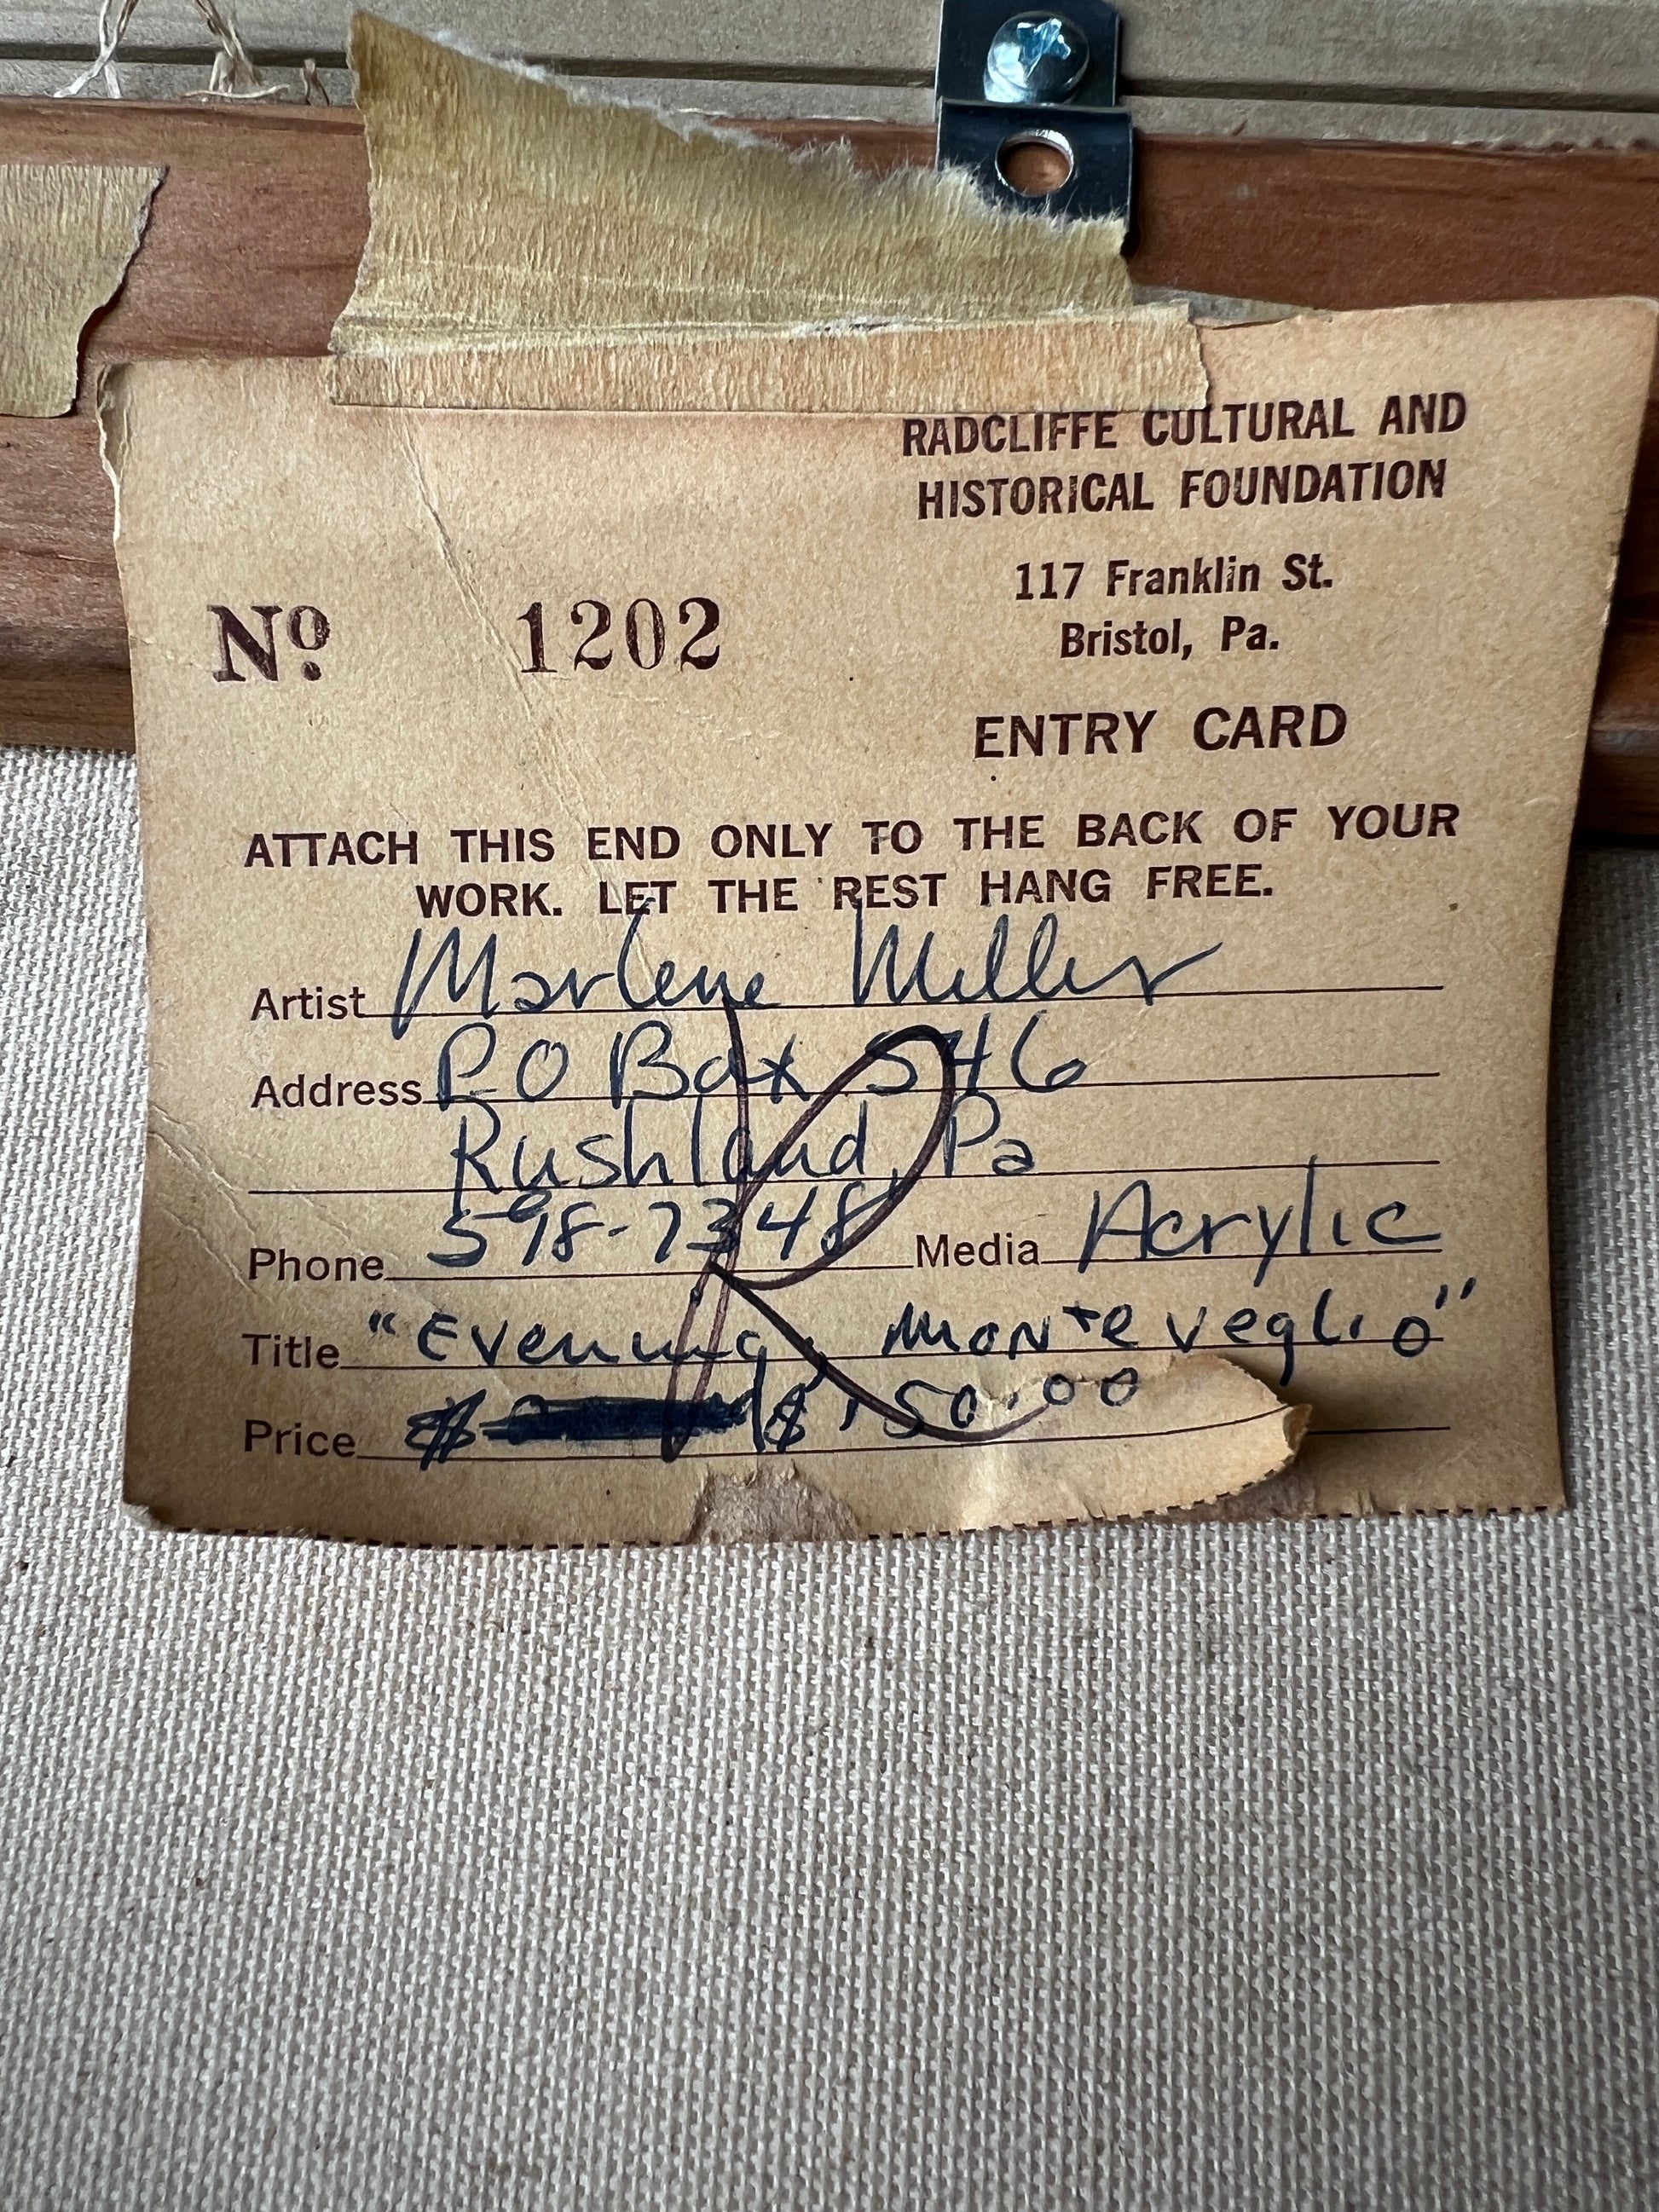 RADCLIFFE CULTURAL AND
HISTORICAL FOUNDATION
117 Franklin St.
Bristol, Pa.
Nº 1202
ENTRY CARD
ATTACH THIS END ONLY TO THE BACK OF YOUR
WORK. LET THE REST HANG FREE.
Artist Marlene Miller
Address P.O Box 546
Rushland, Pa
Phone 598-7348 Media Acrylic
Title "Evening, Monteveglio"
Price $150.00
R